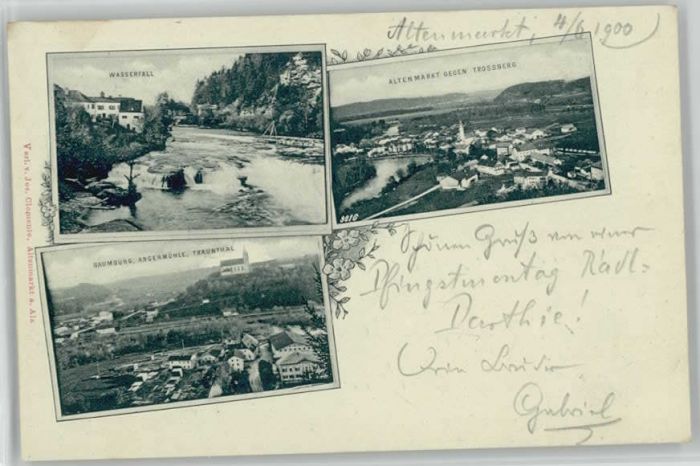 Altenmarkt, 4/6 1900
WASSERFALL
ALTENMARKT GEGEN TROSSBERG
3010
BAUMBURG, ANGERMÜHLE, TRAUNTHAL
Verl. v. Jos. Clemente, Altenmarkt a. Alz
Schönen Gruß von einer
Pfingstmontag Radl-
Parthie!
Bruder
Gabriel